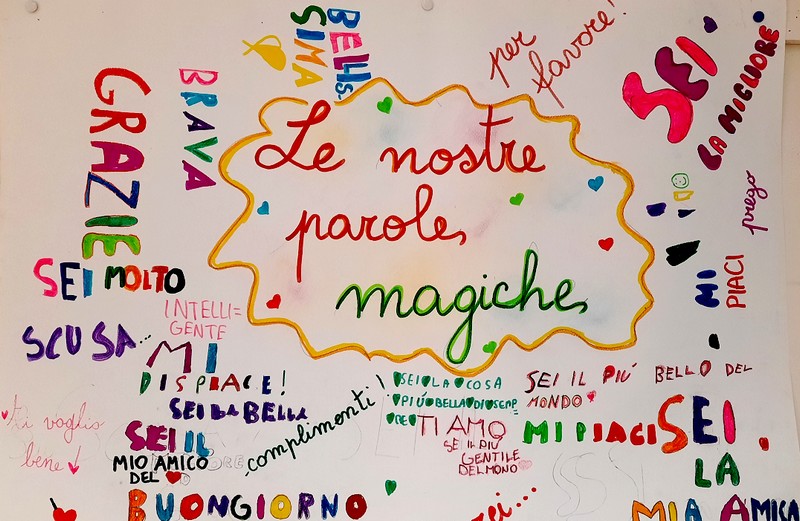 BELLIS-
SIMA
per
favore!
SEI
LA MIGLIORE
GRAZIE
BRAVA
Le nostre
parole
magiche
prego
MI
PIACI
SEI MOLTO
INTELLI=
GENTE
SCUSA...
MI
DISPIACE!
SEI LA BELLA
SEI IL
MIO AMICO
DEL
complimenti!
SEI LA COSA
PIÚ BELLA DI SEMP
RE
TI AMO
SE IL PIÙ
GENTILE
DEL MONO
SEI IL PIÚ
BELLO DEL
MONDO
MI PIACI
SEI
LA
MIA AMICA
ti voglio
bene
BUONGIORNO